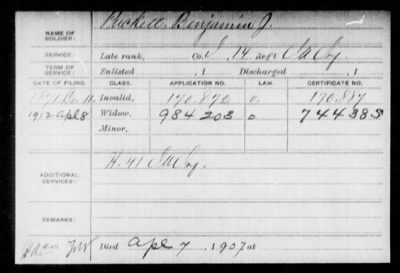 NAME OF SOLDIER: Beckett, Benjamin J.
SERVICE: Late rank, Co. I, 14 Reg't Ia Cy
TERM OF SERVICE: Enlisted , 1 Discharged , 1
DATE OF FILING. CLASS. APPLICATION NO. CERTIFICATE NO.
Invalid, 170.872 170.887
1912 Apl 8 Widow, 984203 744383
Minor,
ADDITIONAL SERVICES: H. 41
REMARKS:
Died Apl 7, 1907 at